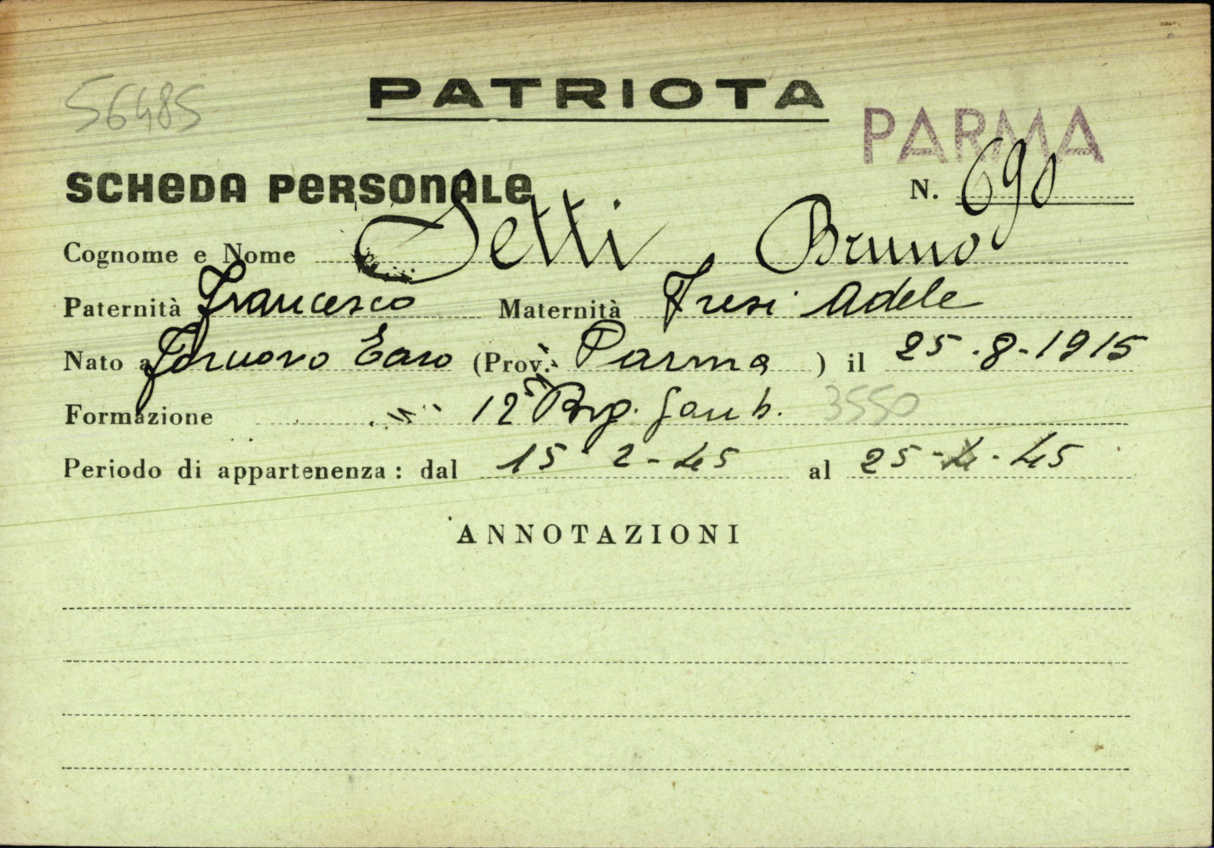 56485
PATRIOTA
PARMA
SCHEDA PERSONALE N. 690
Cognome e Nome Setti Bruno
Paternità Francesco Maternità Fresi Adele
Nato a Fornovo Taro (Prov. Parma ) il 25-8-1915
Formazione 12ª Brg. Garib. 3550
Periodo di appartenenza: dal 15-2-45 al 25-4-45
ANNOTAZIONI